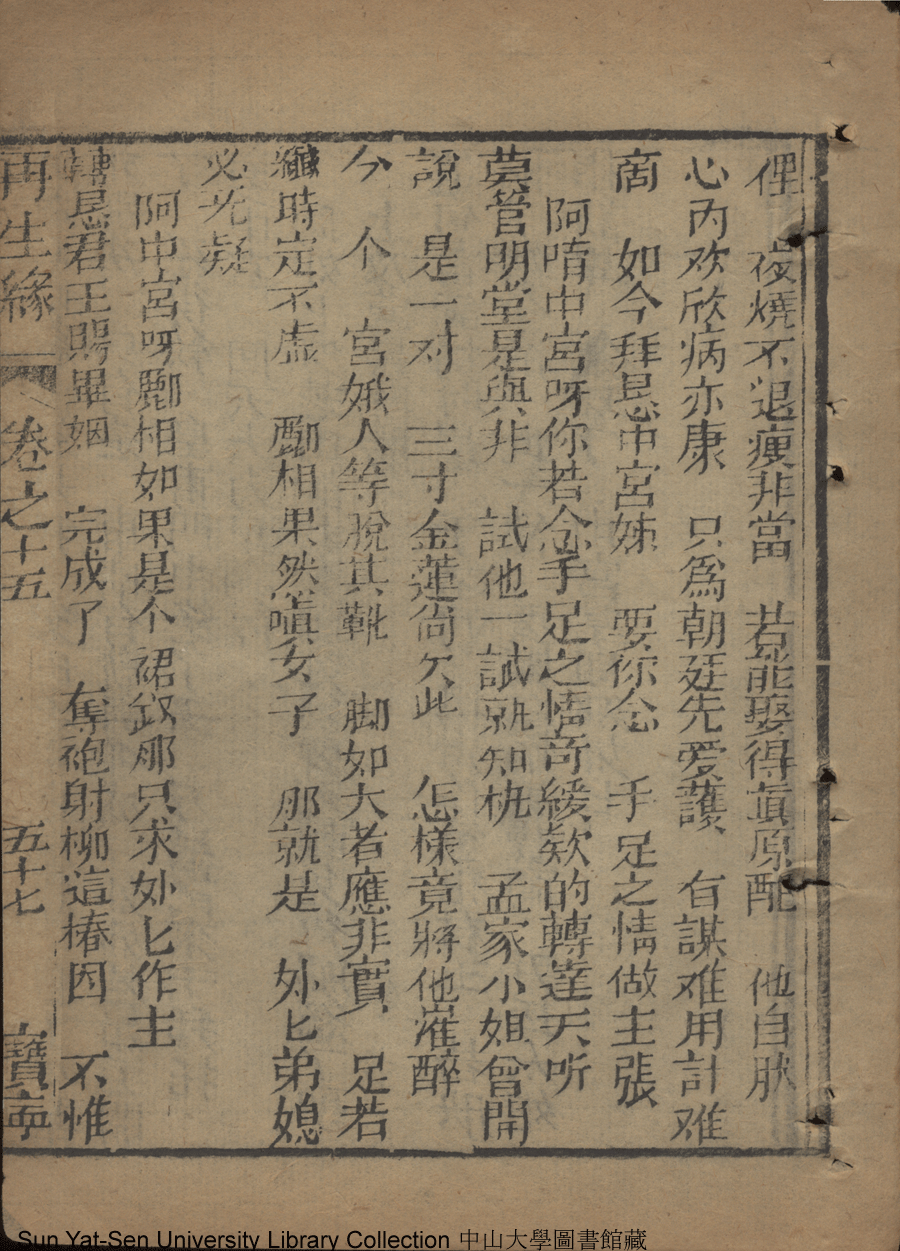 俚　夜燒不退瘦非當　若能娶得真原配　他自肰
心内欢欣病亦康　只為朝廷先爱護　有謀难用計难
啇　如今拜恳中宮姊　要你念　手足之情做主張
阿唷中宮呀你若念手足之情奇緩欵的轉達天听
莫管明堂是與非　試他一試就知机　孟家小姐曾開
說　是一对　三寸金蓮尚欠此　怎樣竟將他㠑醉
今　个　宮娥人等脫其靴　脚如大者應非實　足若
纎時定不虛　酈相果然嗔女子　那就是　外匕弟媳
必旡疑
阿中宮呀酈相如果是个裙釵那只求外匕作主
轉恳君王賜畢姻　完成了　奪袍射柳這樁因　不惟
再生緣　卷之十五　五十七　寶寧
Sun Yat-Sen University Library Collection 中山大學圖書館藏